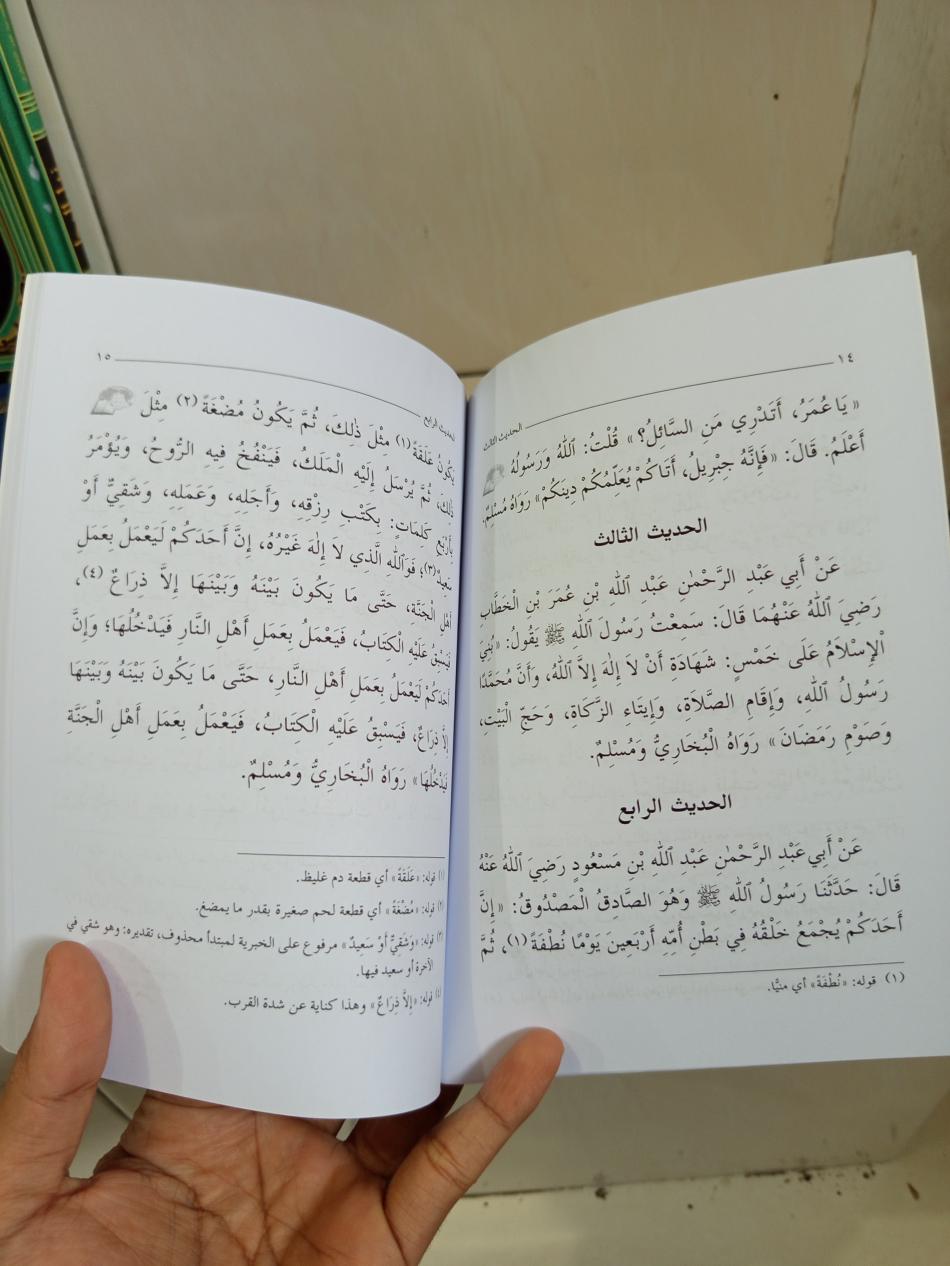 ١٤
الحديث الثالث
«يَا عُمَرُ، أَتَدْرِي مَنِ السَّائِلُ؟» قُلْتُ: اَللهُ وَرَسُولُهُ
أَعْلَمُ. قَالَ: «فَإِنَّهُ جِبْرِيلُ، أَتَاكُمْ يُعَلِّمُكُمْ دِينَكُمْ» رَوَاهُ مُسْلِمٌ.
الحديث الثالث
عَنْ أَبِي عَبْدِ الرَّحْمٰنِ عَبْدِ اللهِ بْنِ عُمَرَ بْنِ الْخَطَّابِ
رَضِيَ اللهُ عَنْهُمَا قَالَ: سَمِعْتُ رَسُولَ اللهِ ﷺ يَقُولُ: «بُنِيَ
الْإِسْلَامُ عَلَى خَمْسٍ: شَهَادَةِ أَنْ لَا إِلٰهَ إِلَّا اللهُ، وَأَنَّ مُحَمَّدًا
رَسُولُ اللهِ، وَإِقَامِ الصَّلَاةِ، وَإِيتَاءِ الزَّكَاةِ، وَحَجِّ الْبَيْتِ،
وَصَوْمِ رَمَضَانَ» رَوَاهُ الْبُخَارِيُّ وَمُسْلِمٌ.
الحديث الرابع
عَنْ أَبِي عَبْدِ الرَّحْمٰنِ عَبْدِ اللهِ بْنِ مَسْعُودٍ رَضِيَ اللهُ عَنْهُ
قَالَ: حَدَّثَنَا رَسُولُ اللهِ ﷺ وَهُوَ الصَّادِقُ الْمَصْدُوقُ: «إِنَّ
أَحَدَكُمْ يُجْمَعُ خَلْقُهُ فِي بَطْنِ أُمِّهِ أَرْبَعِينَ يَوْمًا نُطْفَةً(١)، ثُمَّ
(١) قوله: «نُطْفَةً» أي منيًّا.
الحديث الرابع
١٥
يَكُونُ عَلَقَةً(١) مِثْلَ ذٰلِكَ، ثُمَّ يَكُونُ مُضْغَةً(٢) مِثْلَ
ذٰلِكَ، ثُمَّ يُرْسَلُ إِلَيْهِ الْمَلَكُ، فَيَنْفُخُ فِيهِ الرُّوحَ، وَيُؤْمَرُ
بِأَرْبَعِ كَلِمَاتٍ: بِكَتْبِ رِزْقِهِ، وَأَجَلِهِ، وَعَمَلِهِ، وَشَقِيٌّ أَوْ
سَعِيدٌ(٣)؛ فَوَاللهِ الَّذِي لَا إِلٰهَ غَيْرُهُ، إِنَّ أَحَدَكُمْ لَيَعْمَلُ بِعَمَلِ
أَهْلِ الْجَنَّةِ، حَتَّى مَا يَكُونَ بَيْنَهُ وَبَيْنَهَا إِلَّا ذِرَاعٌ(٤)،
فَيَسْبِقُ عَلَيْهِ الْكِتَابُ، فَيَعْمَلُ بِعَمَلِ أَهْلِ النَّارِ فَيَدْخُلُهَا؛ وَإِنَّ
أَحَدَكُمْ لَيَعْمَلُ بِعَمَلِ أَهْلِ النَّارِ، حَتَّى مَا يَكُونَ بَيْنَهُ وَبَيْنَهَا
إِلَّا ذِرَاعٌ، فَيَسْبِقُ عَلَيْهِ الْكِتَابُ، فَيَعْمَلُ بِعَمَلِ أَهْلِ الْجَنَّةِ
فَيَدْخُلُهَا» رَوَاهُ الْبُخَارِيُّ وَمُسْلِمٌ.
(١) قوله: «عَلَقَةً» أي قطعة دم غليظ.
(٢) قوله: «مُضْغَةً» أي قطعة لحم صغيرة بقدر ما يمضغ.
(٣) قوله: «وَشَقِيٌّ أَوْ سَعِيدٌ» مرفوع على الخبرية لمبتدأ محذوف، تقديره: وهو شقي في
الآخرة أو سعيد فيها.
(٤) قوله: «إِلَّا ذِرَاعٌ» وهذا كناية عن شدة القرب.